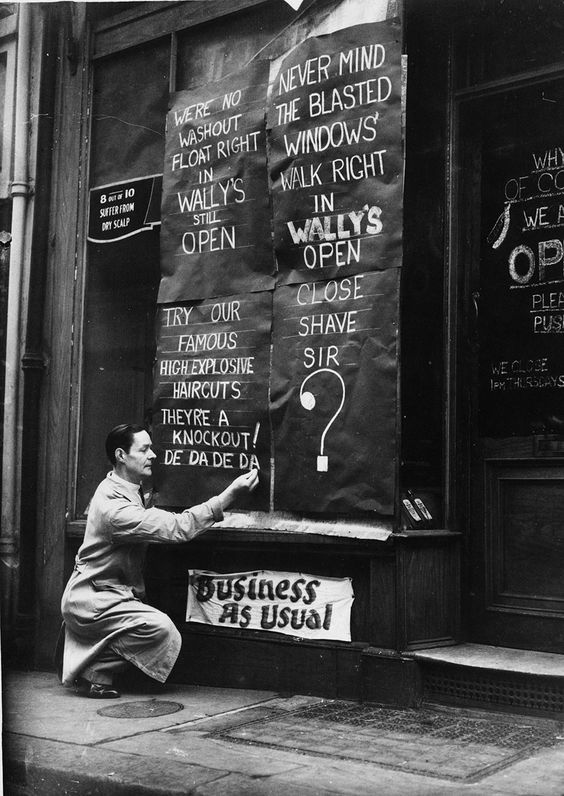 WE'RE NO
WASHOUT
FLOAT RIGHT
IN
WALLY'S
STILL
OPEN
NEVER MIND
THE BLASTED
WINDOWS'
WALK RIGHT
IN
WALLY'S
OPEN
8 OUT OF 10
SUFFER FROM
DRY SCALP
TRY OUR
FAMOUS
HIGH,EXPLOSIVE
HAIRCUTS
THEYRE A
KNOCKOUT!
DE DA DE DA
CLOSE
SHAVE
SIR
?
BUSINESS
AS USUAL
WHY
OF CO
WE A
OP
PLEA
PUS
WE CLOSE
1PM THURSDAYS